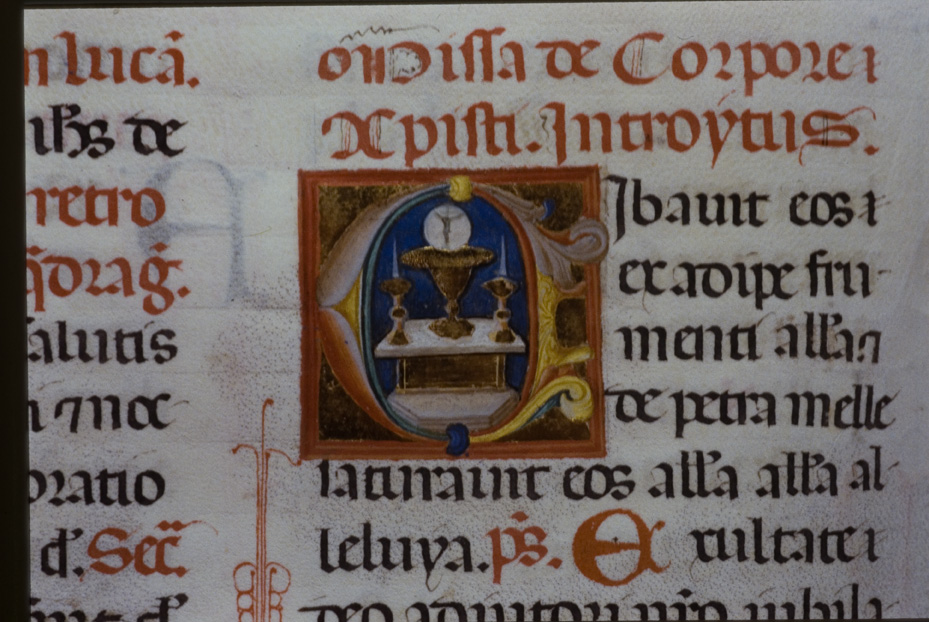 n lucā.
ihs̄ de
retro
q̄draḡ.
salutis
n ⁊ noc
oratio
d'. Sec̄.
Missa de Corpore
Xp̄isti. Introytus.
Cibauit eos
ex adipe fru-
menti all'a ⁊
de petra melle
saturauit eos all'a all'a al-
leluya. ps̄. Exultate
deo adiutori nr̄o iubila-